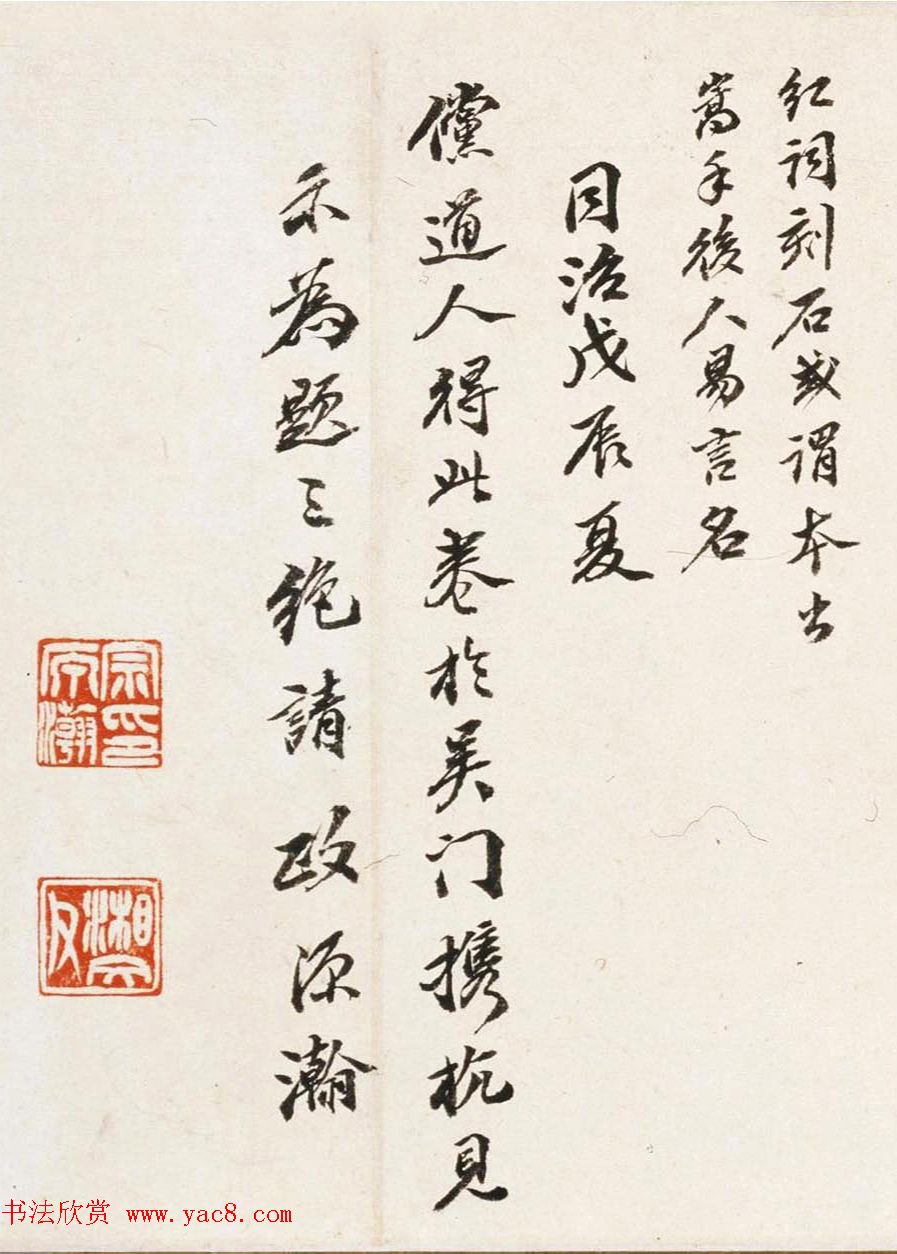 红词刻石或谓本出
嵩手後人易言名
同治戊辰夏
儻道人得此卷於吴门携杭见
示为题三绝請政源瀚
宗印
源瀚
湘文
书法欣赏 www.yac8.com